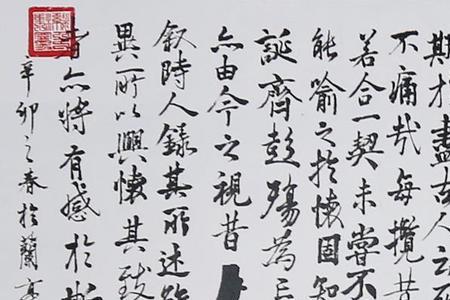 期於盡古人云死
不痛哉每攬昔
若合一契未嘗不
能喻之於懷固知
誕齊彭殤為妄
亦由今之視昔
叙時人錄其所述雖
異所以興懷其致
者亦將有感於斯
辛卯之春於蘭亭